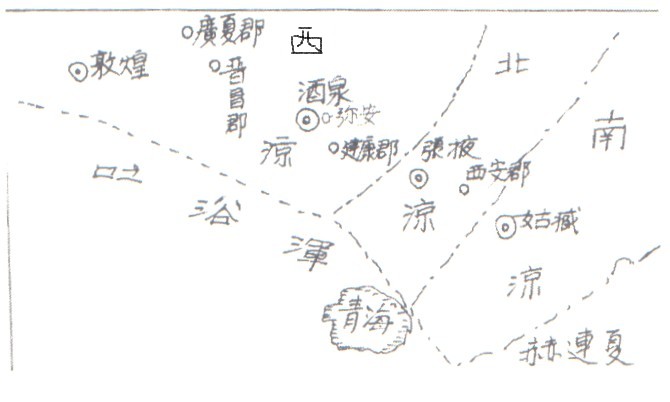 廣夏郡
西
敦煌
晋昌郡
酒泉
弥安
涼
建康郡
張掖
西安郡
北
涼
南
姑臧
涼
吐
浴
渾
青海
赫連夏